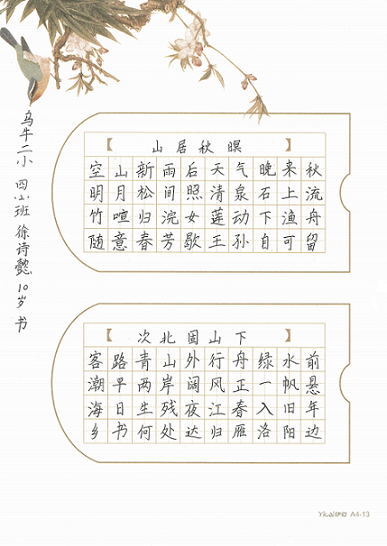 【 山居秋暝 】
空山新雨后天气晚来秋
明月松间照清泉石上流
竹喧归浣女莲动下渔舟
随意春芳歇王孙自可留
【 次北固山下 】
客路青山外行舟绿水前
潮平两岸阔风正一帆悬
海日生残夜江春入旧年
乡书何处达归雁洛阳边
乌牛二小 四小班 徐诗懿 10岁 书
A4-13